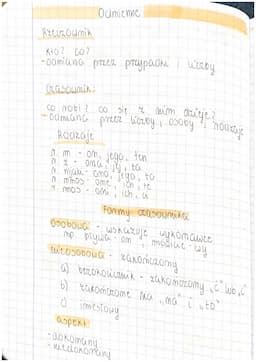 Odmienne
Rzeczownik
Kto? Co?
- odmiana przez przypadki i liczby
Czasownik
co robi? co się z nim dzieje?
- odmiana przez liczby, osoby i rodzaje
Rodzaje
r. m - on, jego, ten
r. ż - ona, jej, ta
r. nijaki - ono, jego, to
r. mnos - one, ich, te
r. mos - oni, ich, ci
Formy czasownika
osobowa - wskazuje wykonawcę
np. pływa - on,
nieosobowa - zakończony
a) bezokolicznik - zakończony „ć" lub „c"
b) zakończone na „no" i „to"
c) imiesłowy
aspekt
- dokonany
- niedokonany